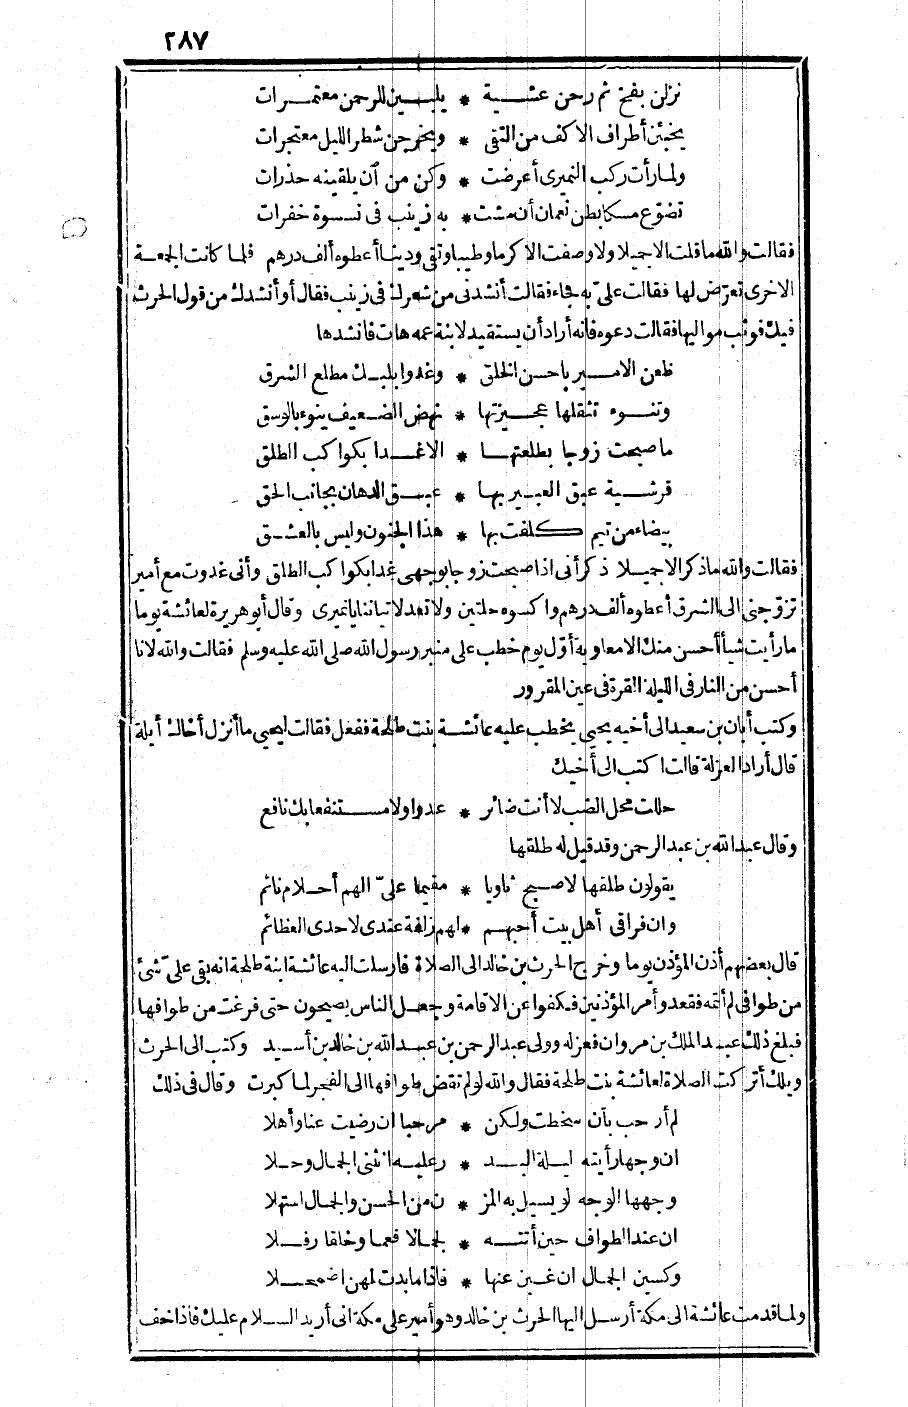 ٢٨٧
نزلن بفخ ثم رحن عشية * يلبين للرحمن معتمرات
يخبئن أطراف الاكف من التقى * ويخرجن شطر الليل معتجرات
ولما رأت ركب النميرى أعرضت * وكن من أن يلقينه حذرات
تضوّع مسكا بطن نعمان أن مشت * به زينب فى نسوة خفرات
فقالت والله ما قلت الا جميلا ولا وصفت الا كرما وطيبا وتقى ودينا أعطوه ألف درهم فلما كانت الجمعة
الاخرى تعرّض لها فقالت علىّ به فجاء فقالت أنشدنى من شعرك فى زينب فقال أو أنشدك من قول الحرث
فيك فوثب مواليها فقالت دعوه فانه أراد أن يستقيد لابنة عمه هات فانشدها
ظعن الامير باحسن الخلق * وغدوا بلبك مطلع الشرق
وتنوء تثقلها عجيزتها * نهض الضعيف ينوء بالوسق
ما صبحت زوجا بطلعتها * الا غدا بكواكب الطلق
قرشية عبق العبير بها * عبق الدهان بجانب الحق
بيضاء من تيم كلفت بها * هذا الجنون وليس بالعشق
فقالت والله ما ذكر الا جميلا ذكر أنى اذا صبحت زوجا بوجهى غدا بكواكب الطلق وأنى غدوت مع أمير
تزوّجنى الى الشرق أعطوه ألف درهم واكسوه حلتين ولا تعد لاتياننا يا نميرى وقال أبو هريرة لعائشة يوما
ما رأيت شيأ أحسن منك الا معاوية أوّل يوم خطب على منبر رسول الله صلى الله عليه وسلم فقالت والله لانا
أحسن من النار فى الليلة القرة فى عين المقرور
وكتب أبان بن سعيد الى أخيه يحيى يخطب عليه عائشة بنت طلحة ففعل فقالت ليحيى ما أنزل أخاك أيلة
قال أراد العزلة قالت اكتب الى أخيك
حللت محل الضب لا أنت ضائر * عدوا ولا مستنفعا بك نافع
وقال عبد الله بن عبد الرحمن وقد قيل له طلقها
يقولون طلقها لاصبح ثاويا * مقيما علىّ الهم أحلام نائم
وان فراقى أهل بيت أحبهم * لهم زلفة عندى لاحدى العظائم
قال بعضهم أذن المؤذن يوما وخرج الحرث بن خالد الى الصلاة فارسلت اليه عائشة ابنة طلحة انه بقى علىّ شئ
من طوافى لم أتمه فقعد وأمر المؤذنين فكفوا عن الاقامة وجعل الناس يصيحون حتى فرغت من طوافها
فبلغ ذلك عبد الملك بن مروان فعزله وولى عبد الرحمن بن عبد الله بن خالد بن أسيد وكتب الى الحرث
ويلك أتركت الصلاة لعائشة بنت طلحة فقال والله لو لم تقض طوافها الى الفجر لما كبرت وقال فى ذلك
لم أرحب بأن سخطت ولكن * مرحبا ان رضيت عنا وأهلا
ان وجها رأيته ليلة البد * ر عليه انثنى الجمال وحلا
وجهها الوجه لو يسيل به المز * ن من الحسن والجمال استهلا
ان عند الطواف حين أتته * لجمالا فعما وخلقا رفلا
وكسين الجمال ان غبن عنها * فاذا ما بدت لهن اضمحلا
ولما قدمت عائشة الى مكة أرسل اليها الحرث بن خالد وهو أمير على مكة انى أريد السلام عليك فاذا خف